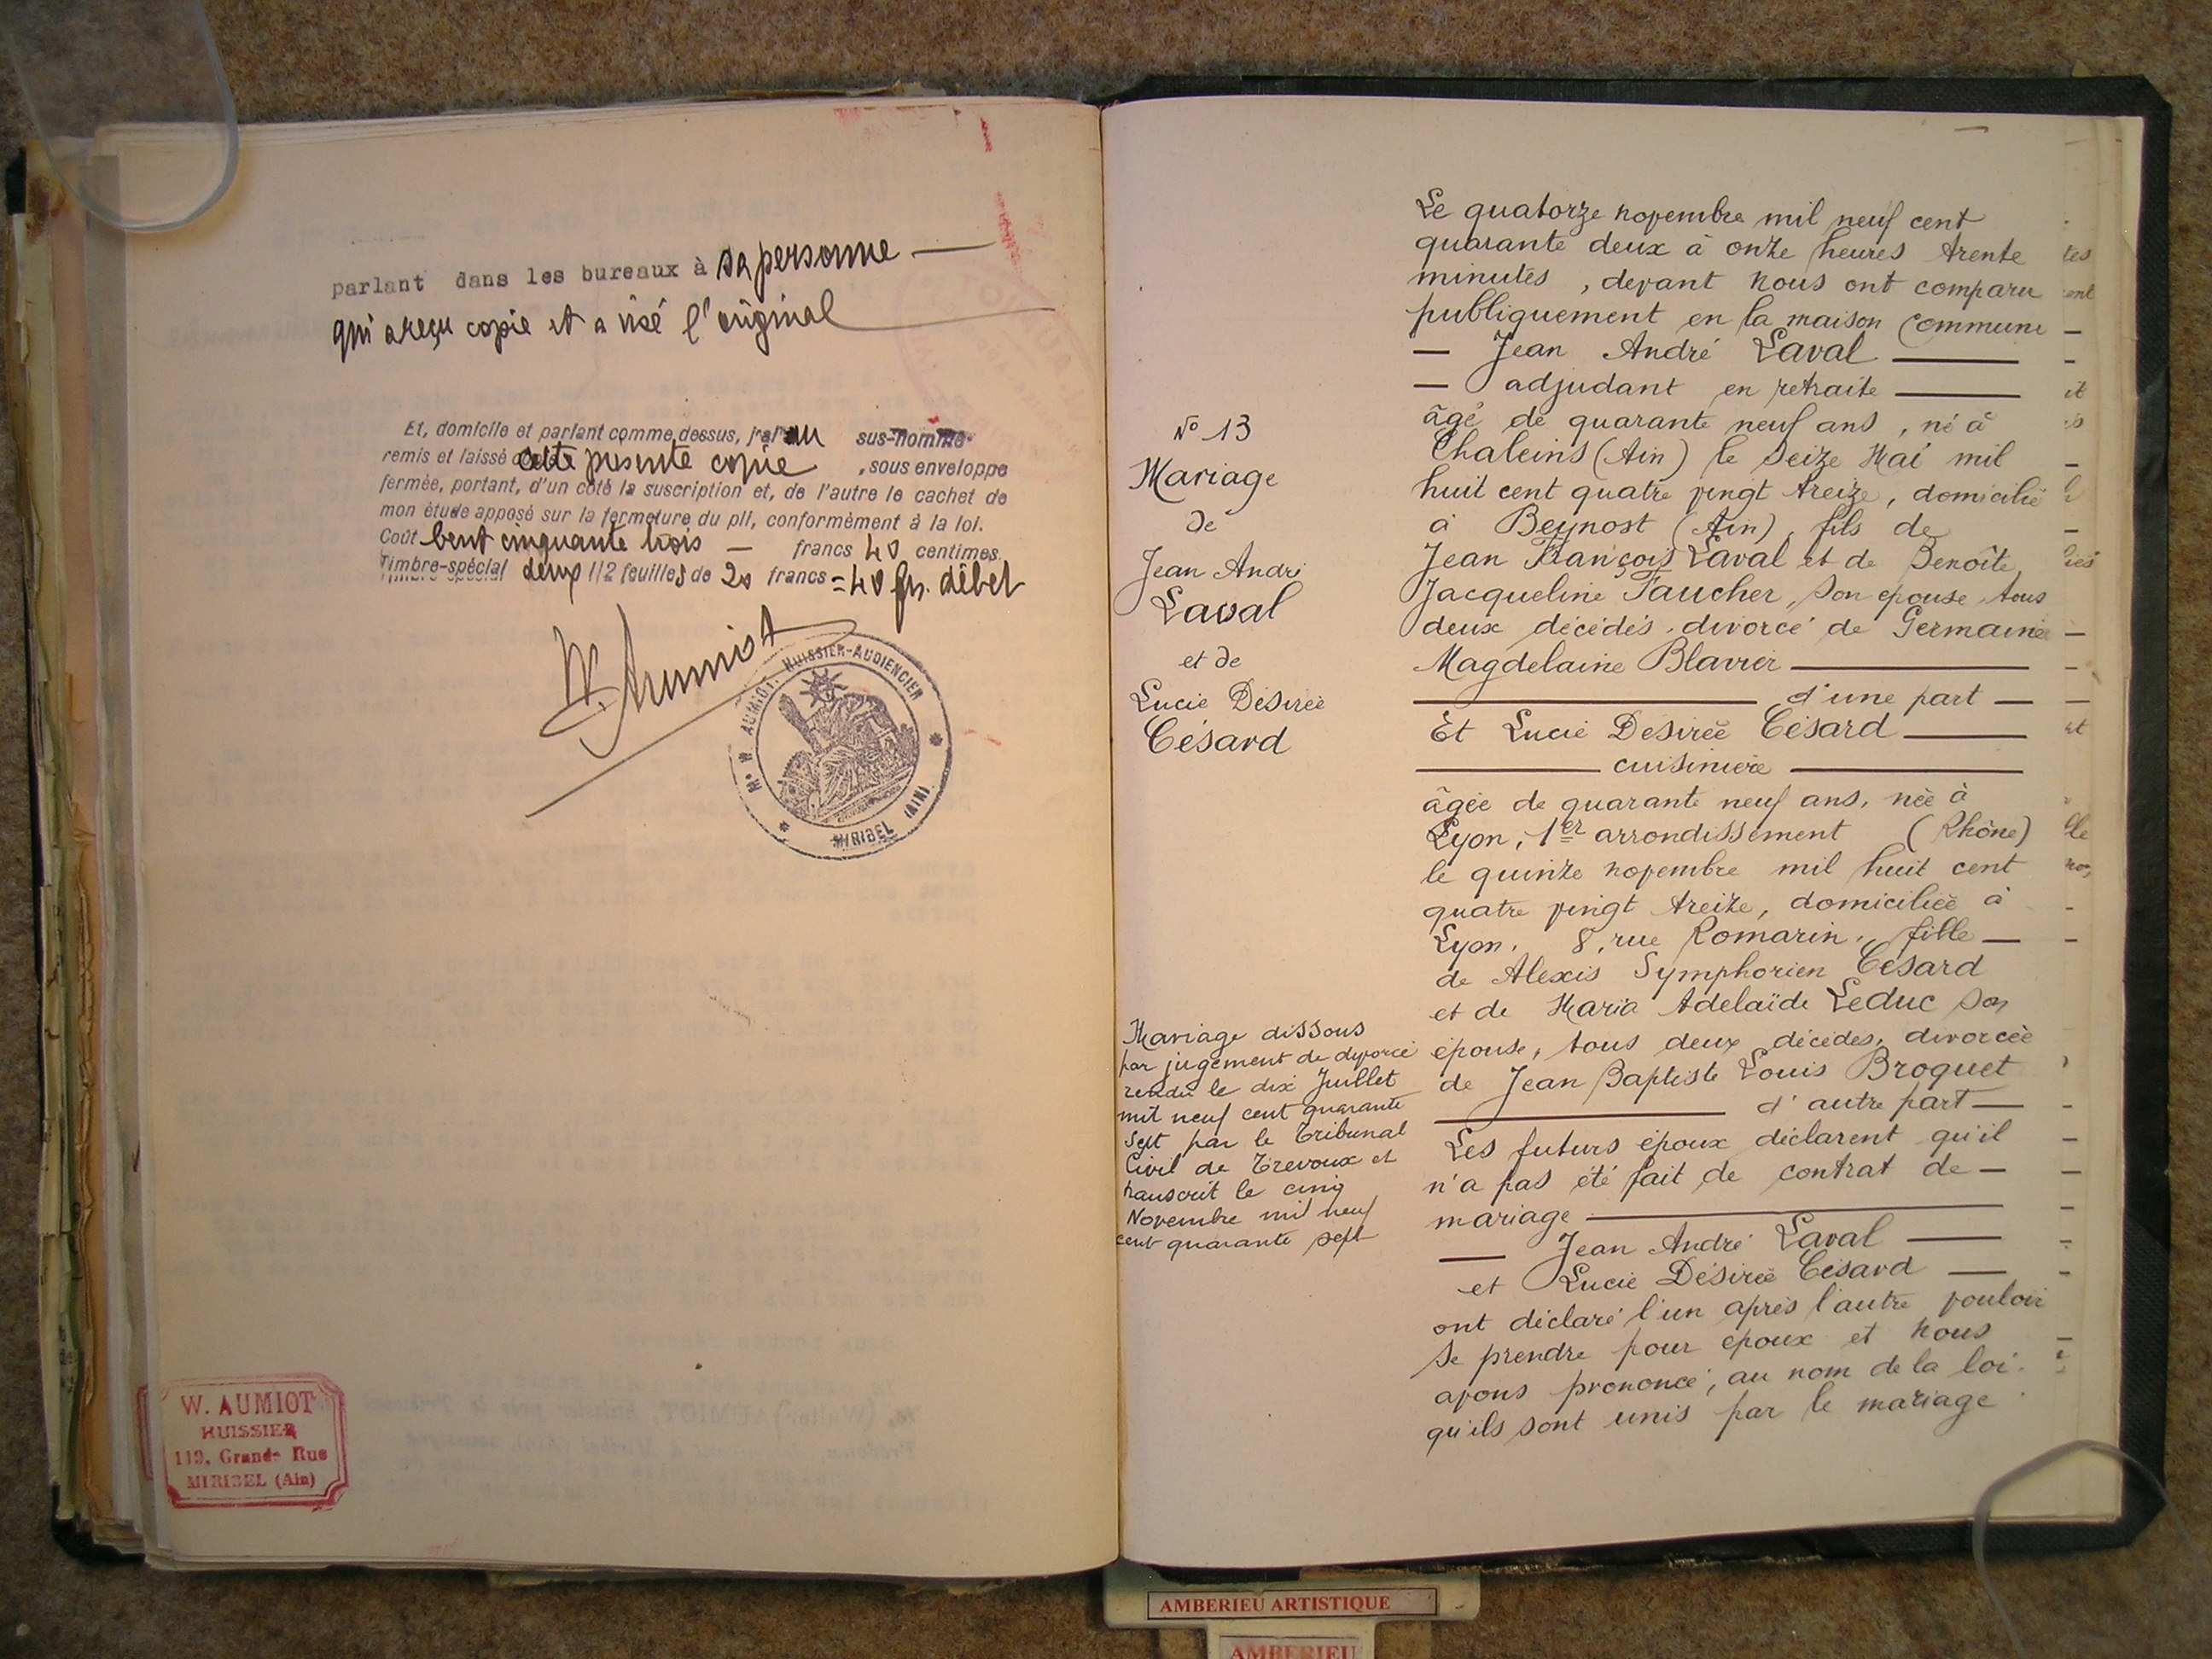 parlant dans les bureaux à sa personne —
qui a reçu copie et a visé l'original
Et, domicile et parlant comme dessus, j'ai au sus-nommé
remis et laissé cette présente copie, sous enveloppe
fermée, portant, d'un côté la suscription et, de l'autre le cachet de
mon étude apposé sur la fermeture du pli, conformément à la loi.
Coût Cent cinquante trois — francs 40 centimes.
Timbre-spécial deux 1/2 feuilles de 20 francs = 40 frs. débet
W. Aumiot
Me W. AUMIOT. HUISSIER-AUDIENCIER
* MIRIBEL (AIN) *
W. AUMIOT
HUISSIER
119, Grande Rue
MIRIBEL (Ain)
N° 13
Mariage
de
Jean André
Laval
et de
Lucie Désirée
Césard
Mariage dissous
par jugement de divorce
rendu le dix Juillet
mil neuf cent quarante
sept par le Tribunal
Civil de Trévoux et
transcrit le cinq
Novembre mil neuf
cent quarante sept
Le quatorze novembre mil neuf cent
quarante deux à onze heures trente
minutes, devant nous ont comparu
publiquement en la maison commune
— Jean André Laval —
— adjudant en retraite —
âgé de quarante neuf ans, né à
Chaleins (Ain) le seize Mai mil
huit cent quatre vingt treize, domicilié
à Beynost (Ain), fils de
Jean François Laval et de Benoîte
Jacqueline Faucher, son épouse, tous
deux décédés. divorcé de Germaine
Magdelaine Blavier —
— d'une part —
Et Lucie Désirée Césard —
— cuisinière —
âgée de quarante neuf ans, née à
Lyon, 1er arrondissement (Rhône)
le quinze novembre mil huit cent
quatre vingt treize, domiciliée à
Lyon, 8, rue Romarin, fille —
de Alexis Symphorien Césard
et de Maria Adelaïde Leduc son
épouse, tous deux décédés, divorcée
de Jean Baptiste Louis Broquet
— d'autre part —
Les futurs époux déclarent qu'il
n'a pas été fait de contrat de —
mariage —
— Jean André Laval —
et Lucie Désirée Césard —
ont déclaré l'un après l'autre vouloir
se prendre pour époux et nous
avons prononcé, au nom de la loi.
qu'ils sont unis par le mariage
AMBERIEU ARTISTIQUE
AMBERIEU